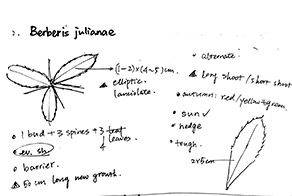 2. Berberis julianae
(1-2)×(4~5)cm.
elliptic.
lanceolate.
• 1 bud + 3 spines + 3 leaf
4 leaves
ev. sh
• barrier.
50 cm long new growth.
• alternate.
long shoot / short shoot
• autumn: red/yellow+green.
• sun ✓
• hedge
• tough.
2×5cm